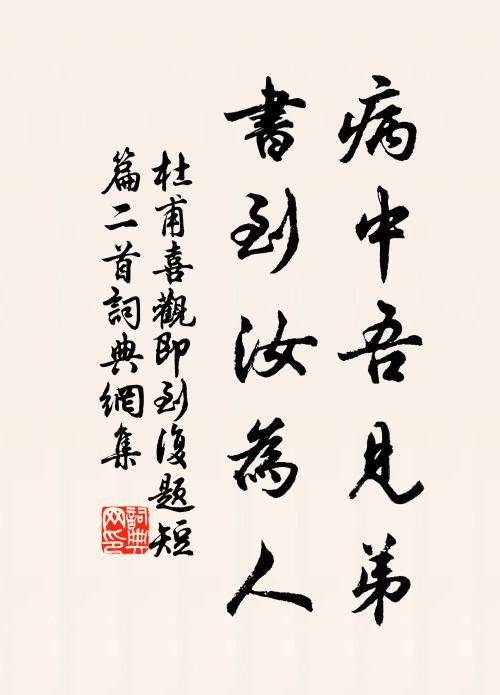 病中吾見弟
書到汝為人
杜甫喜觀即到復題短
篇二首詞典網集
詞典
网印